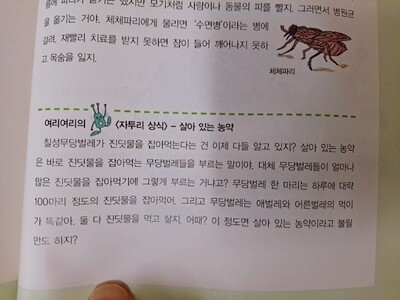 지만 모기처럼 사람이나 동물의 피를 빨지. 그러면서 병원균
을 옮기는 거야. 체체파리에게 물리면 '수면병'이라는 병에
걸려. 재빨리 치료를 받지 못하면 잠이 들어 깨어나지 못하
고 목숨을 잃지.
체체파리
여리여리의 <자투리 상식> – 살아 있는 농약
칠성무당벌레가 진딧물을 잡아먹는다는 건 이제 다들 알고 있지? 살아 있는 농약
은 바로 진딧물을 잡아먹는 무당벌레들을 부르는 말이야. 대체 무당벌레들이 얼마나
많은 진딧물을 잡아먹기에 그렇게 부르는 거냐고? 무당벌레 한 마리는 하루에 대략
100마리 정도의 진딧물을 잡아먹어. 그리고 무당벌레는 애벌레와 어른벌레의 먹이
가 똑같아. 둘 다 진딧물을 먹고 살지. 어때? 이 정도면 살아 있는 농약이라고 불릴
만도 하지?